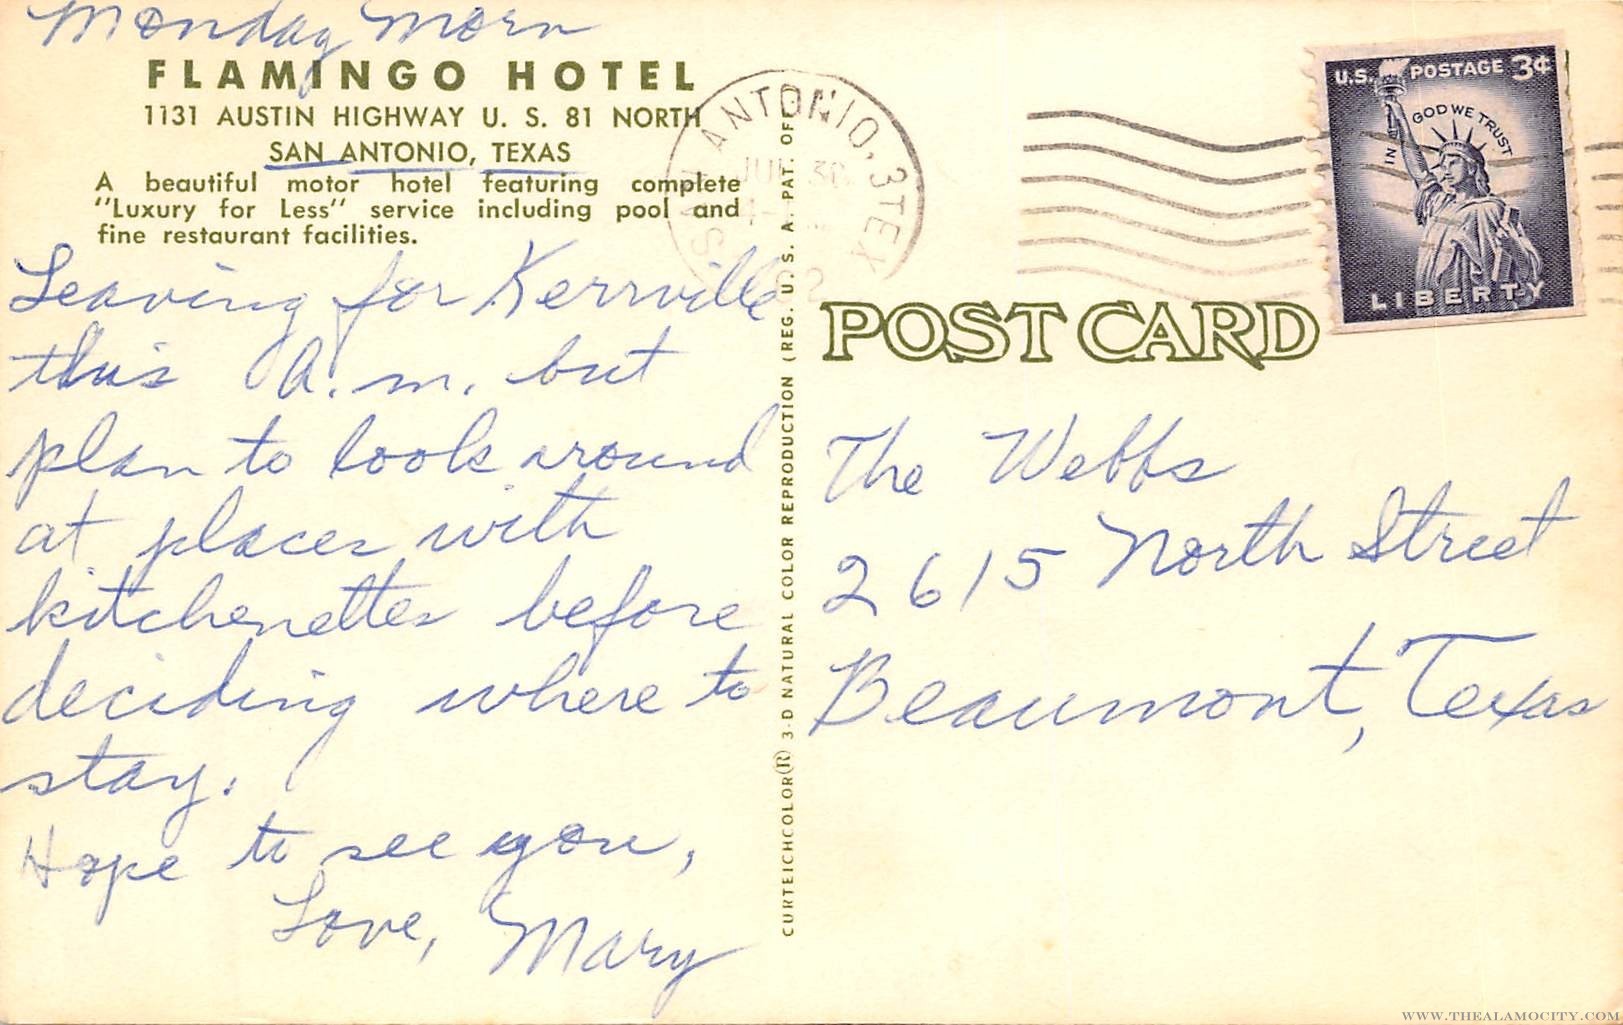 Monday Morn
FLAMINGO HOTEL
1131 AUSTIN HIGHWAY U. S. 81 NORTH
SAN ANTONIO, TEXAS
A beautiful motor hotel featuring complete
"Luxury for Less" service including pool and
fine restaurant facilities.
Leaving for Kerrville
this A.m. but
plan to look around
at places with
kitchenettes before
deciding where to
stay.
Hope to see you,
Love, Mary
CURTEICHCOLOR® 3-D NATURAL COLOR REPRODUCTION (REG. U. S. A. PAT. OFF.
SAN ANTONIO, 3 TEX
30
U.S. POSTAGE 3¢
IN GOD WE TRUST
LIBERTY
POST CARD
The Webbs
2615 North Street
Beaumont, Texas
WWW.THEALAMOCITY.COM